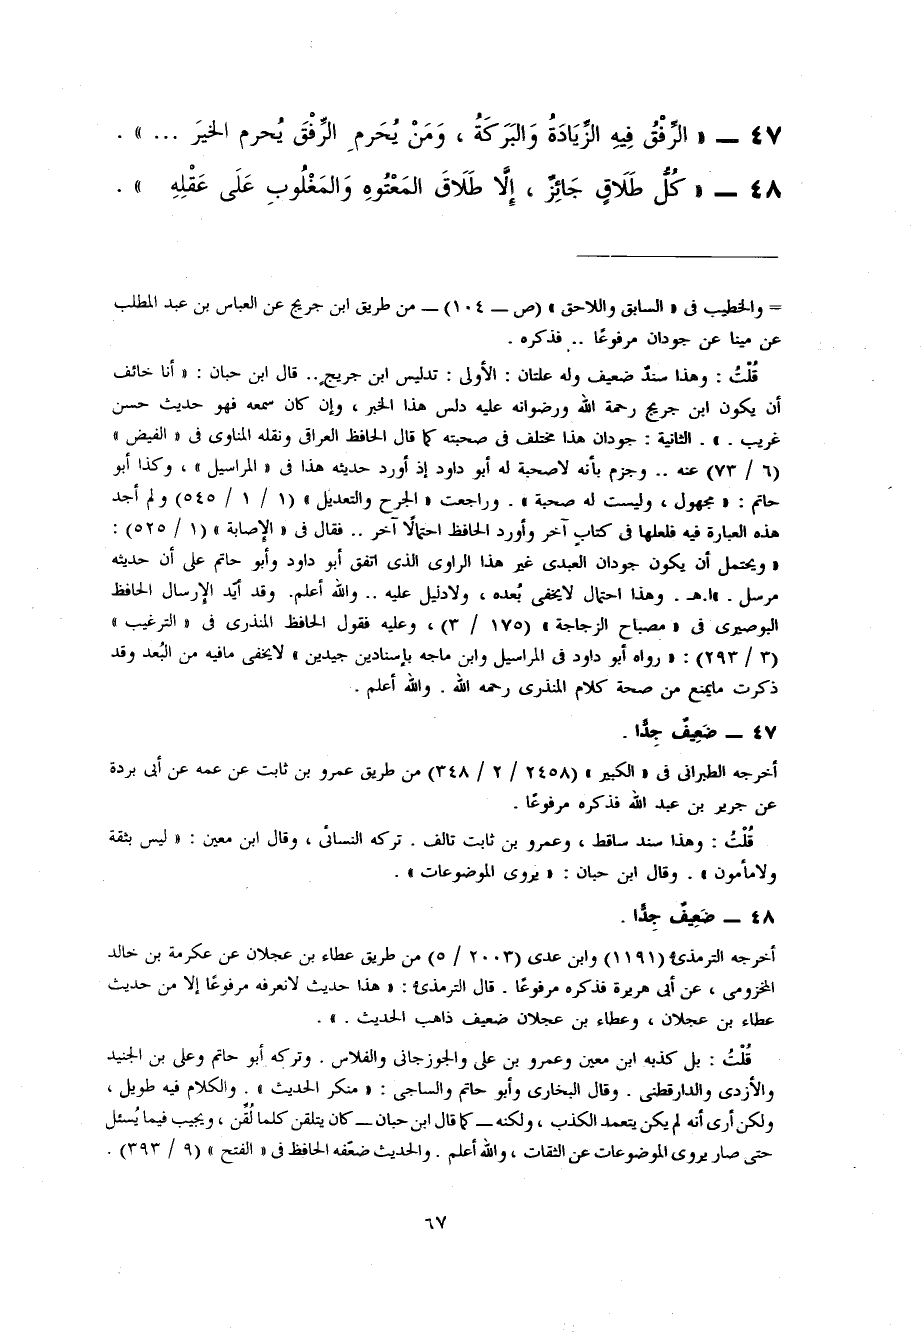 ٤٧ ــ « الرِّفْقُ فِيهِ الزِّيَادَةُ وَالبَرَكَةُ ، وَمَنْ يُحَرمِ الرِّفْقَ يُحرم الخيرَ ... » .
٤٨ ــ « كُلُّ طَلَاقٍ جَائِزٌ ، إِلَّا طَلَاقَ المَعْتُوهِ وَالمَغْلُوبِ عَلَى عَقْلِهِ » .
= والخطيب فى « السابق واللاحق » (ص ــ ١٠٤) ــ من طريق ابن جريج عن العباس بن عبد المطلب
عن مينا عن جودان مرفوعًا .. فذكره .
قُلْتُ : وهذا سندٌ ضعيف وله علتان : الأولى : تدليس ابن جريج.. قال ابن حبان : « أنا خائف
أن يكون ابن جريج رحمة الله ورضوانه عليه دلس هذا الخبر ، وإن كان سمعه فهو حديث حسن
غريب . » . الثانية : جودان هذا مختلف فى صحبته كما قال الحافظ العراقى ونقله المناوى فى « الفيض »
(٦ / ٧٣) عنه .. وجزم بأنه لاصحبة له أبو داود إذ أورد حديثه هذا فى « المراسيل » ، وكذا أبو
حاتم : « مجهول ، وليست له صحبة » . وراجعت « الجرح والتعديل » (١ / ١ / ٥٤٥) و لم أجد
هذه العبارة فيه فلعلها فى كتاب آخر وأورد الحافظ احتمالًا آخر .. فقال فى « الإصابة » (١ / ٥٢٥) :
« ويحتمل أن يكون جودان العبدى غير هذا الراوى الذى اتفق أبو داود وأبو حاتم على أن حديثه
مرسل . »ا.هـ . وهذا احتمال لايخفى بُعده ، ولادليل عليه .. والله أعلم. وقد أيّد الإرسال الحافظ
البوصيرى فى « مصباح الزجاجة » (١٧٥ / ٣) ، وعليه فقول الحافظ المنذرى فى « الترغيب »
(٣ / ٢٩٣) : « رواه أبو داود فى المراسيل وابن ماجه بإسنادين جيدين » لايخفى مافيه من البُعد وقد
ذكرت مايمنع من صحة كلام المنذرى رحمه الله . والله أعلم .
٤٧ ــ ضَعِيفٌ جِدًّا .
أخرجه الطبرانى فى « الكبير » (٢٤٥٨ / ٢ / ٣٤٨) من طريق عمرو بن ثابت عن عمه عن أبى بردة
عن جرير بن عبد الله فذكره مرفوعًا .
قُلْتُ : وهذا سند ساقط ، وعمرو بن ثابت تالف . تركه النسائى ، وقال ابن معين : « ليس بثقة
ولامأمون » . وقال ابن حبان : « يروى الموضوعات » .
٤٨ ــ ضَعِيفٌ جِدًّا .
أخرجه الترمذى (١١٩١) وابن عدى (٢٠٠٣ / ٥) من طريق عطاء بن عجلان عن عكرمة بن خالد
المخزومى ، عن أبى هريرة فذكره مرفوعًا . قال الترمذى : « هذا حديث لانعرفه مرفوعًا إلا من حديث
عطاء بن عجلان ، وعطاء بن عجلان ضعيف ذاهب الحديث . » .
قُلْتُ : بل كذبه ابن معين وعمرو بن على والجوزجانى والفلاس . وتركه أبو حاتم وعلى بن الجنيد
والأزدى والدارقطنى . وقال البخارى وأبو حاتم والساجى : « منكر الحديث » . والكلام فيه طويل ،
ولكن أرى أنه لم يكن يتعمد الكذب ، ولكنه ــ كما قال ابن حبان ــ كان يتلقن كلما لُقّن ، ويجيب فيما يُسئل
حتى صار يروى الموضوعات عن الثقات ، والله أعلم . والحديث ضعّفه الحافظ فى « الفتح » (٩ / ٣٩٣) .
٦٧